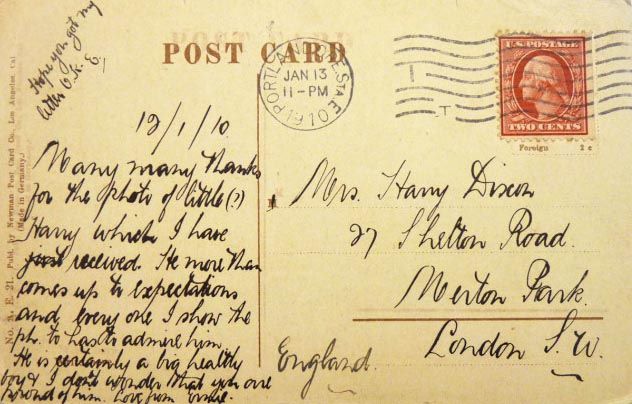 Hope you got my
letter O.K. E.
POST CARD
PORTLAND, ORE. STA. E
JAN 13
11-PM
1910
U.S. POSTAGE
TWO CENTS
Foreign 2c
No. A. E. 21. Publ. by Newman Post Card Co. Los Angeles, Cal.
(Made in Germany)
12/1/10
Many many thanks
for the photo of little(?)
Harry which I have
just received. He more than
comes up to expectations
and every one I show the
ph. to has to admire him.
He is certainly a big healthy
boy & I don't wonder that you are
proud of him. Love from
Mrs. Harry Dixon
27 Shelton Road.
Merton Park.
London S.W.
England.